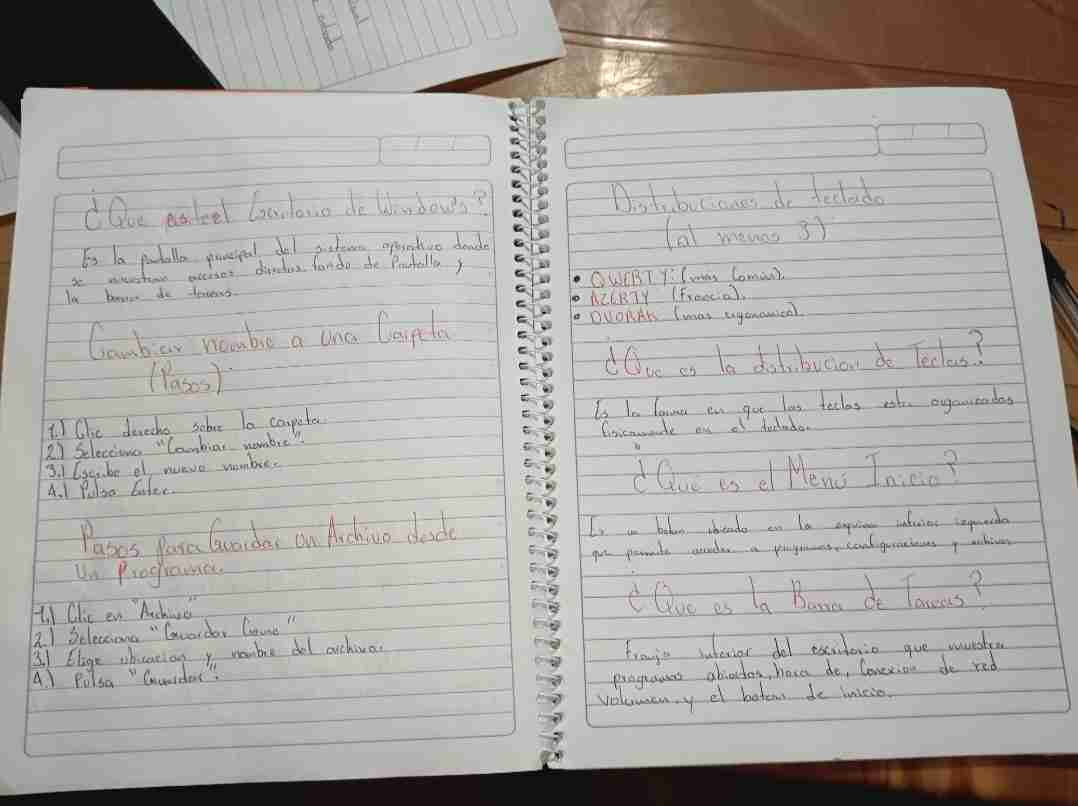 ¿Que es el Escritorio de Windows?
Es la pantalla principal del sistema operativo donde
se muestran accesos directos, fondo de Pantalla y
la barra de tareas.
Cambiar nombre a una Carpeta
(Pasos)
1.) Clic derecho sobre la carpeta.
2) Selecciona "Cambiar nombre".
3.) Escribe el nuevo nombre.
4.) Pulsa Enter.
Pasos para Guardar un Archivo desde
Un Programa.
1.) Clic en "Archivo"
2.) Selecciona "Guardar Como"
3.) Elige ubicacion y nombre del archivo.
4.) Pulsa "Guardar".
Distribuciones de teclado
(al menos 3)
• QWERTY: (más Común).
• AZERTY (Francia).
• DVORAK (mas ergonomica).
¿Que es la distribucion de Teclas?
Es la forma en que las teclas estan organizadas
fisicamente en el teclado.
¿Que es el Menú Inicio?
Es un boton ubicado en la esquina inferior izquierda
que permite acceder a programas, configuraciones y archivos
¿Que es la Barra de Tareas?
Franja inferior del escritorio que muestra
programas abiertos, hora de, Conexion de red
Volumen, y el boton de inicio.